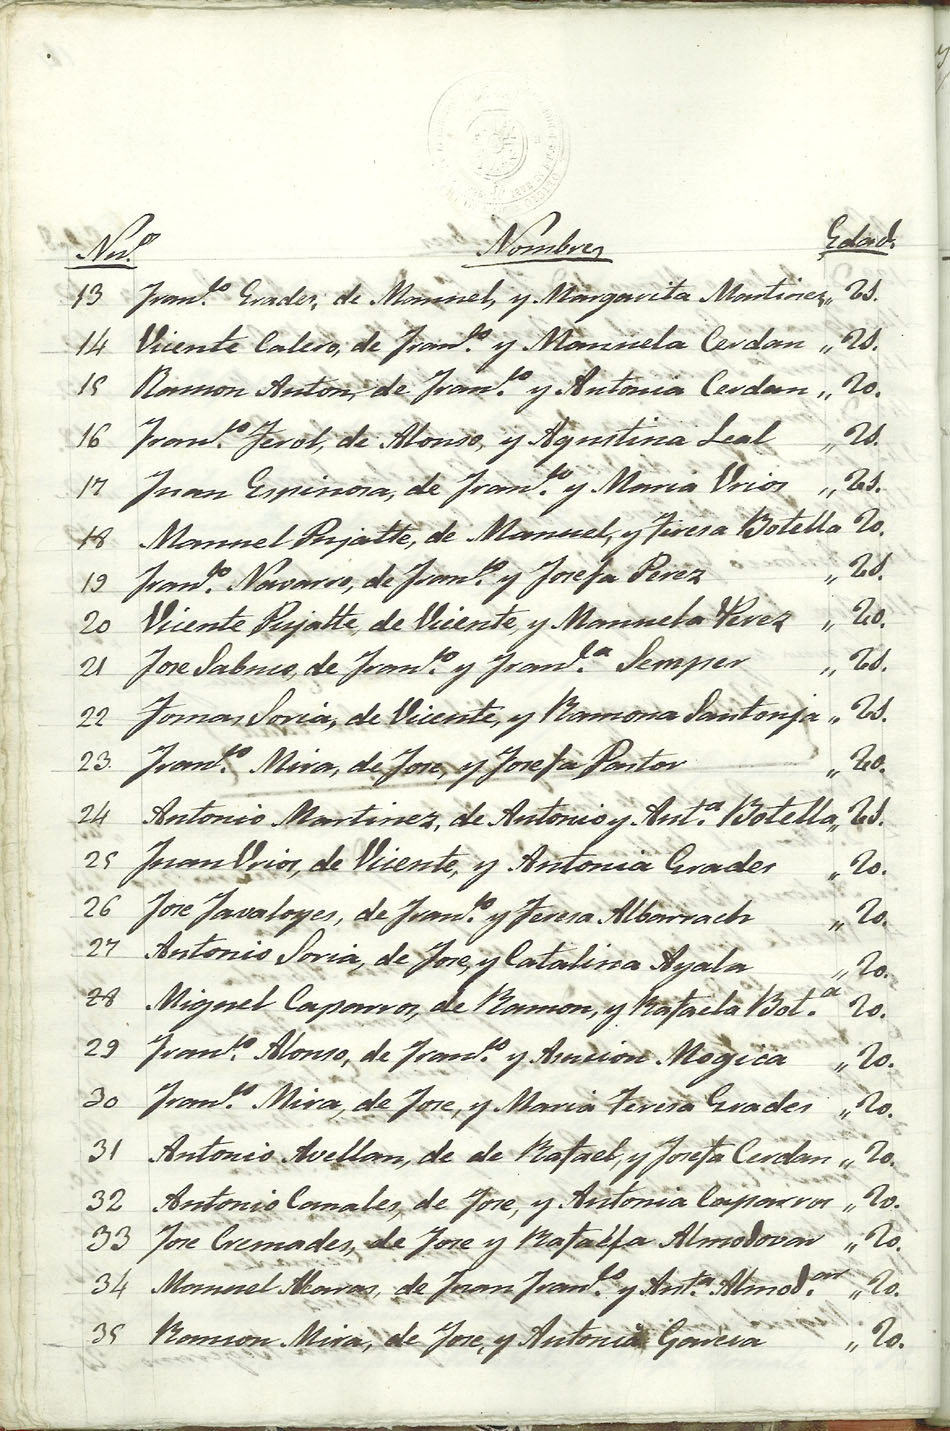 Nu.º Nombres Edad.
13 Fran.co Grades, de Manuel, y Margarita Martinez „ 21.
14 Vicente Calero, de Fran.co y Manuela Cerdan „ 21.
15 Ramon Anton, de Fran.co y Antonia Cerdan „ 20.
16 Fran.co Ferol, de Alonso, y Agustina Leal „ 21.
17 Juan Espinosa, de Fran.co y Maria Vrios „ 21.
18 Manuel Pujalte, de Manuel, y Teresa Botella 20.
19 Fran.co Navarro, de Fran.co y Josefa Perez „ 21.
20 Vicente Pujalte, de Vicente, y Manuela Perez „ 20.
21 Jose Sabuco, de Fran.co y Fran.ca Semper „ 21.
22 Tomas Soria, de Vicente, y Ramona Santonja „ 21.
23 Fran.co Mira, de Jose, y Josefa Pastor „ 20.
24 Antonio Martinez, de Antonio y Ant.a Botella „ 21.
25 Juan Vrios, de Vicente, y Antonia Grades „ 20.
26 Jose Javaloyes, de Fran.co y Teresa Albarrach „ 20.
27 Antonio Soria, de Jose, y Catalina Ayala „ 20.
28 Miguel Caparros, de Ramon, y Rafaela Bot.a 20.
29 Fran.co Alonso, de Fran.co y Asucion Mogica „ 20.
30 Fran.co Mira, de Jose, y Maria Teresa Grades „ 20.
31 Antonio Avellan, de de Rafael, y Josefa Cerdan „ 20.
32 Antonio Canales, de Jose, y Antonia Caparros „ 20.
33 Jose Cremades, de Jose y Rafaela Almodovar „ 20.
34 Manuel de Juan Fran.co y Ant.a Almod.ar „ 20.
35 Ramon Mira, de Jose, y Antonia Garcia „ 20.